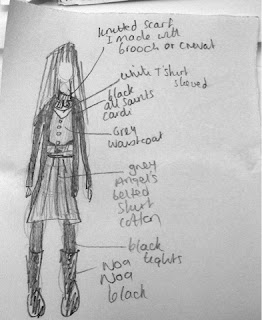 knitted scarf
I made with
brooch or cravat
white T shirt
sleeved
black
all saints
cardi
Grey
waistcoat
grey
Angel's
belted
skirt
cotton
black
tights
Noa
Noa
black